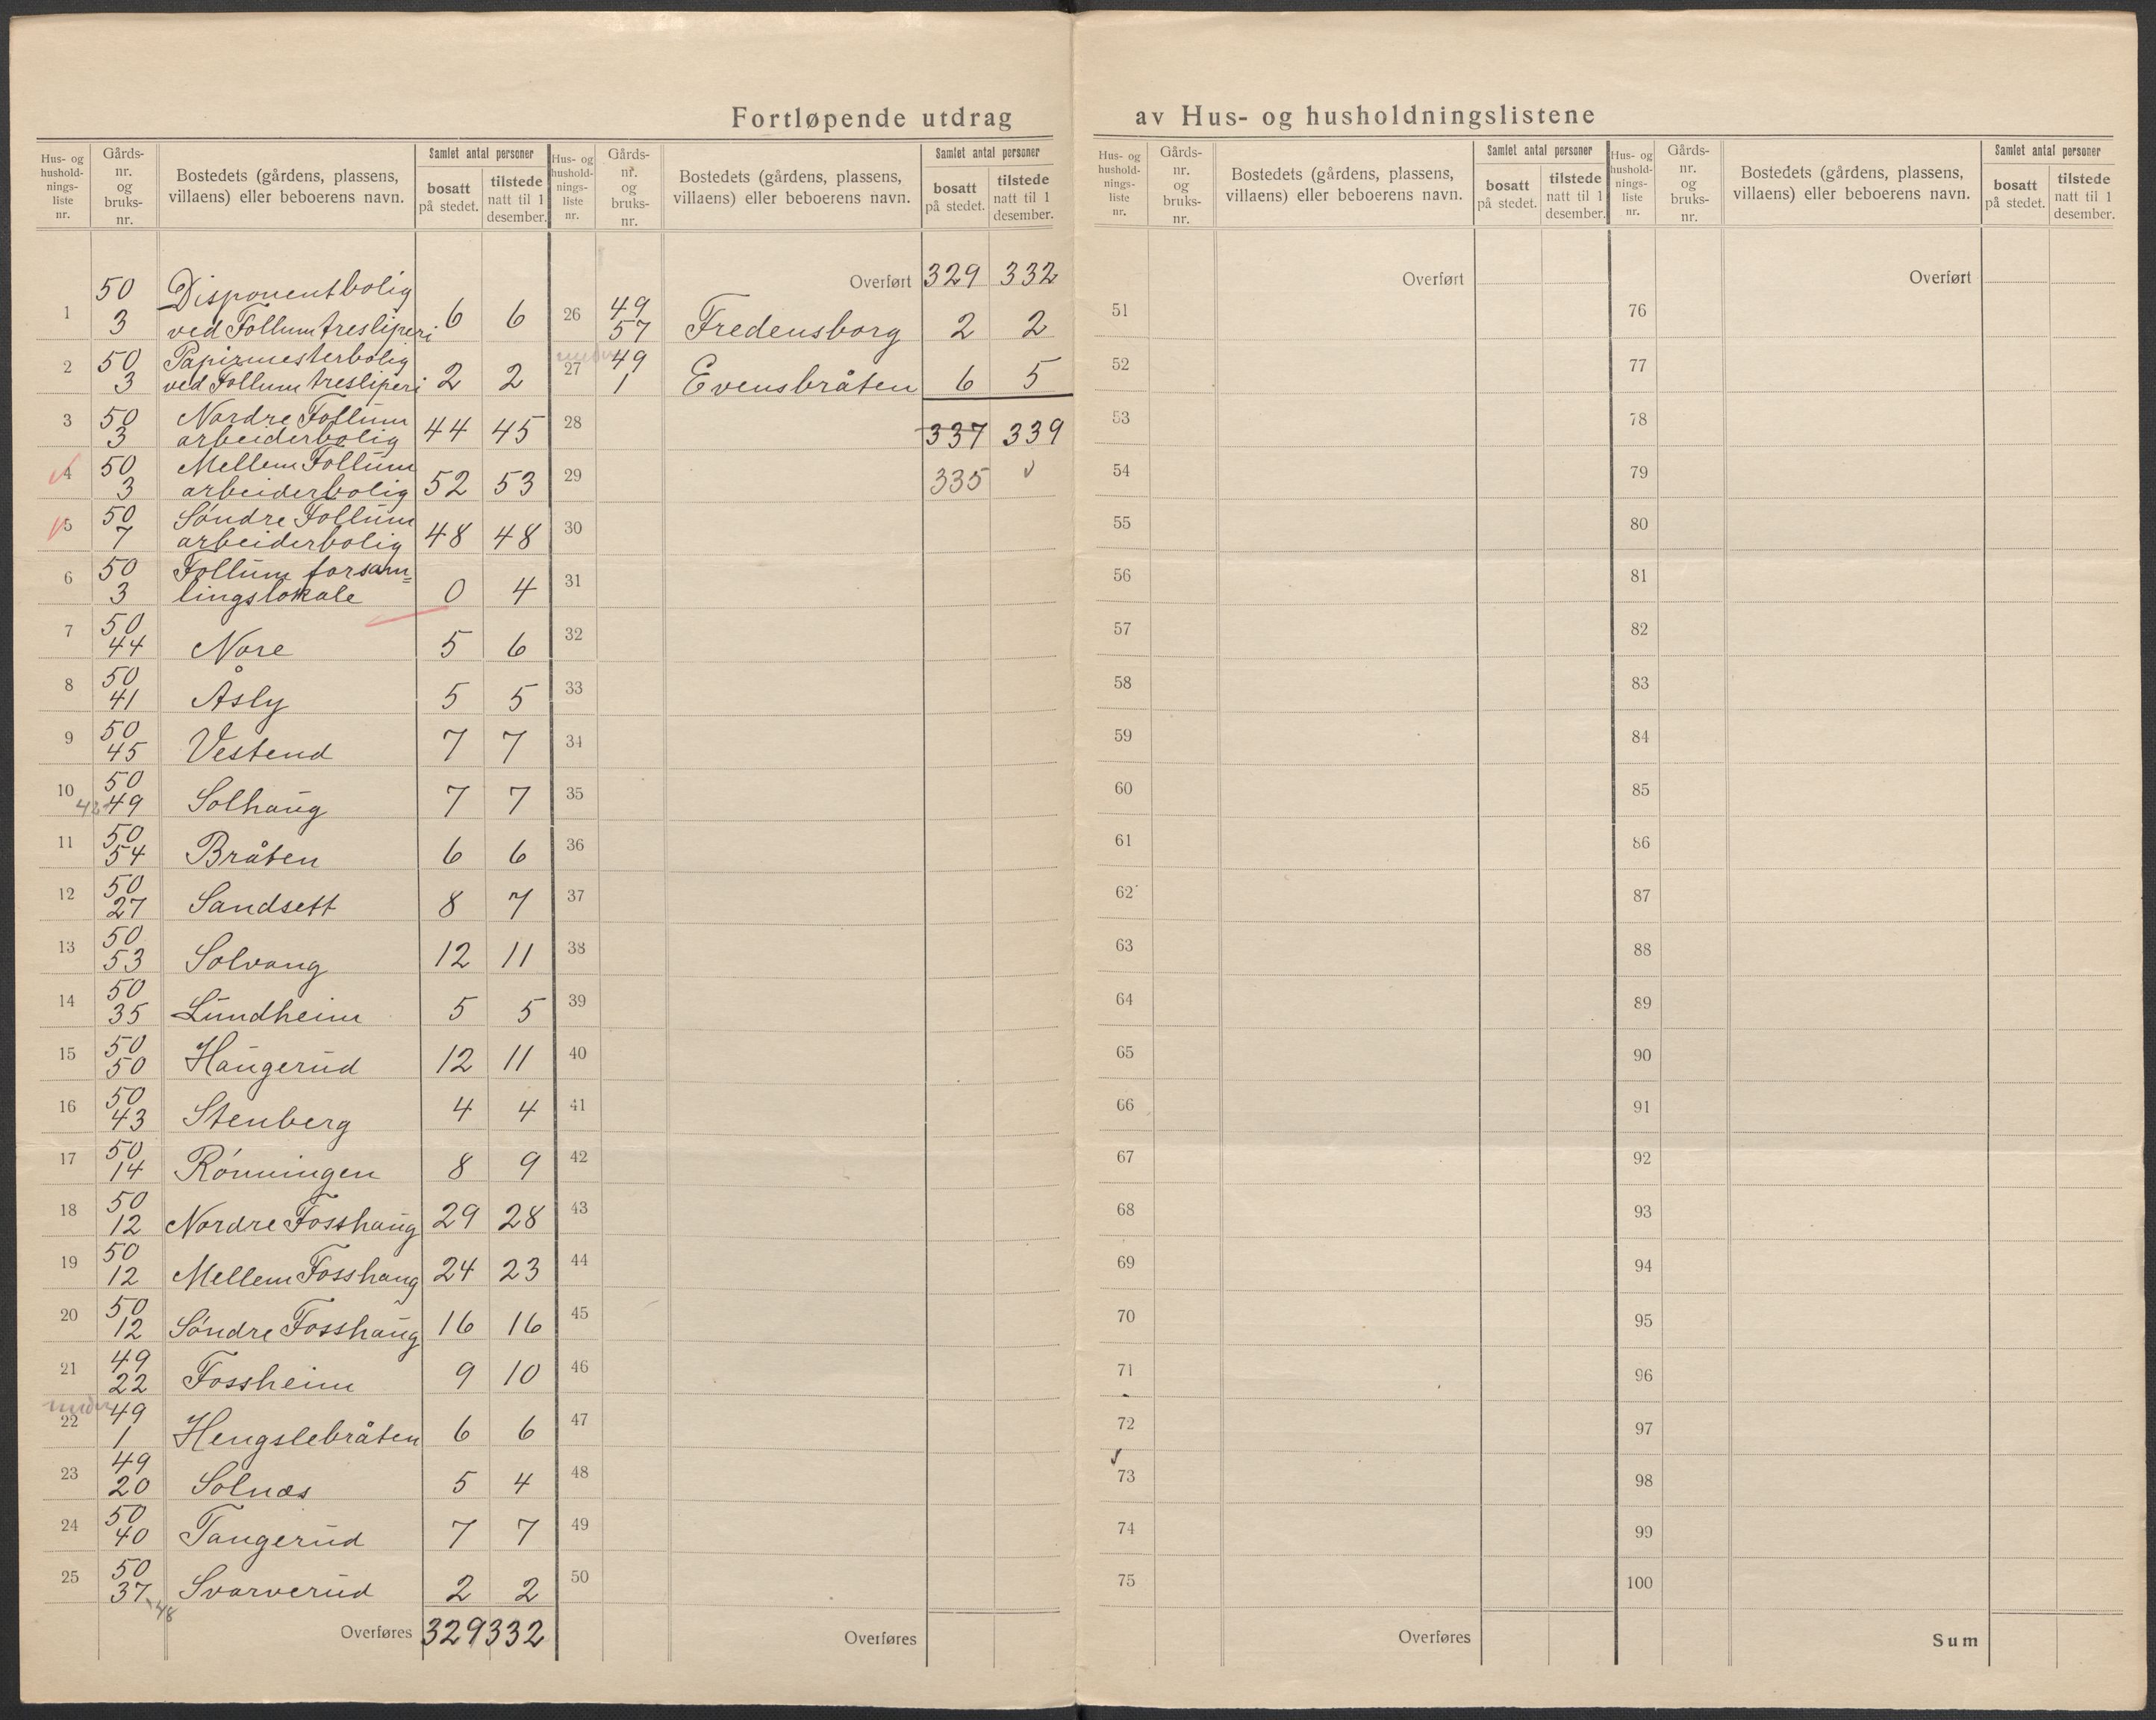 Fortløpende utdrag av Hus- og husholdningslistene
Hus- og hushold-nings-liste nr. | Gårds-nr. og bruks-nr. | Bostedets (gårdens, plassens, villaens) eller beboerens navn. | Samlet antal personer | bosatt på stedet. | tilstede natt til 1 desember.
1 | 50 3 | Disponentbolig ved Follum tresliperi | 6 | 6
2 | 50 3 | Papirmesterbolig ved Follum tresliperi | 2 | 2
3 | 50 3 | Nordre Follum arbeiderbolig | 44 | 45
4 | 50 3 | Mellem Follum arbeiderbolig | 52 | 53
5 | 50 7 | Söndre Follum arbeiderbolig | 48 | 48
6 | 50 3 | Follum forsam= lingslokale | 0 | 4
7 | 50 44 | Nore | 5 | 6
8 | 50 41 | Åsly | 5 | 5
9 | 50 45 | Vestend | 7 | 7
10 | 50 49 | Solhaug | 7 | 7
11 | 50 54 | Bråten | 6 | 6
12 | 50 27 | Sandsett | 8 | 7
13 | 50 53 | Solvang | 12 | 11
14 | 50 35 | Lundheim | 5 | 5
15 | 50 50 | Haugerud | 12 | 11
16 | 50 43 | Stenberg | 4 | 4
17 | 50 14 | Rönningen | 8 | 9
18 | 50 12 | Nordre Fosshaug | 29 | 28
19 | 50 12 | Mellem Fosshaug | 24 | 23
20 | 50 12 | Söndre Fosshaug | 16 | 16
21 | 49 22 | Fossheim | 9 | 10
under
22 | 49 1 | Hengslebråten | 6 | 6
23 | 49 20 | Solnæs | 5 | 4
24 | 50 40 | Tangerud | 7 | 7
25 | 50 37 48 | Svarverud | 2 | 2
Overføres 329 332
Hus- og hushold-nings-liste nr. | Gårds-nr. og bruks-nr. | Bostedets (gårdens, plassens, villaens) eller beboerens navn. | Samlet antal personer | bosatt på stedet. | tilstede natt til 1 desember.
Overført 329 332
26 | 49 57 | Fredensborg | 2 | 2
under
27 | 49 1 | Evensbråten | 6 | 5
28 | 337 | 339
29 | 335
30
31
32
33
34
35
36
37
38
39
40
41
42
43
44
45
46
47
48
49
50
Overføres
Hus- og hushold-nings-liste nr. | Gårds-nr. og bruks-nr. | Bostedets (gårdens, plassens, villaens) eller beboerens navn. | Samlet antal personer | bosatt på stedet. | tilstede natt til 1 desember.
Overført
51
52
53
54
55
56
57
58
59
60
61
62
63
64
65
66
67
68
69
70
71
72
73
74
75
Overføres
Hus- og hushold-nings-liste nr. | Gårds-nr. og bruks-nr. | Bostedets (gårdens, plassens, villaens) eller beboerens navn. | Samlet antal personer | bosatt på stedet. | tilstede natt til 1 desember.
Overført
76
77
78
79
80
81
82
83
84
85
86
87
88
89
90
91
92
93
94
95
96
97
98
99
100
Sum